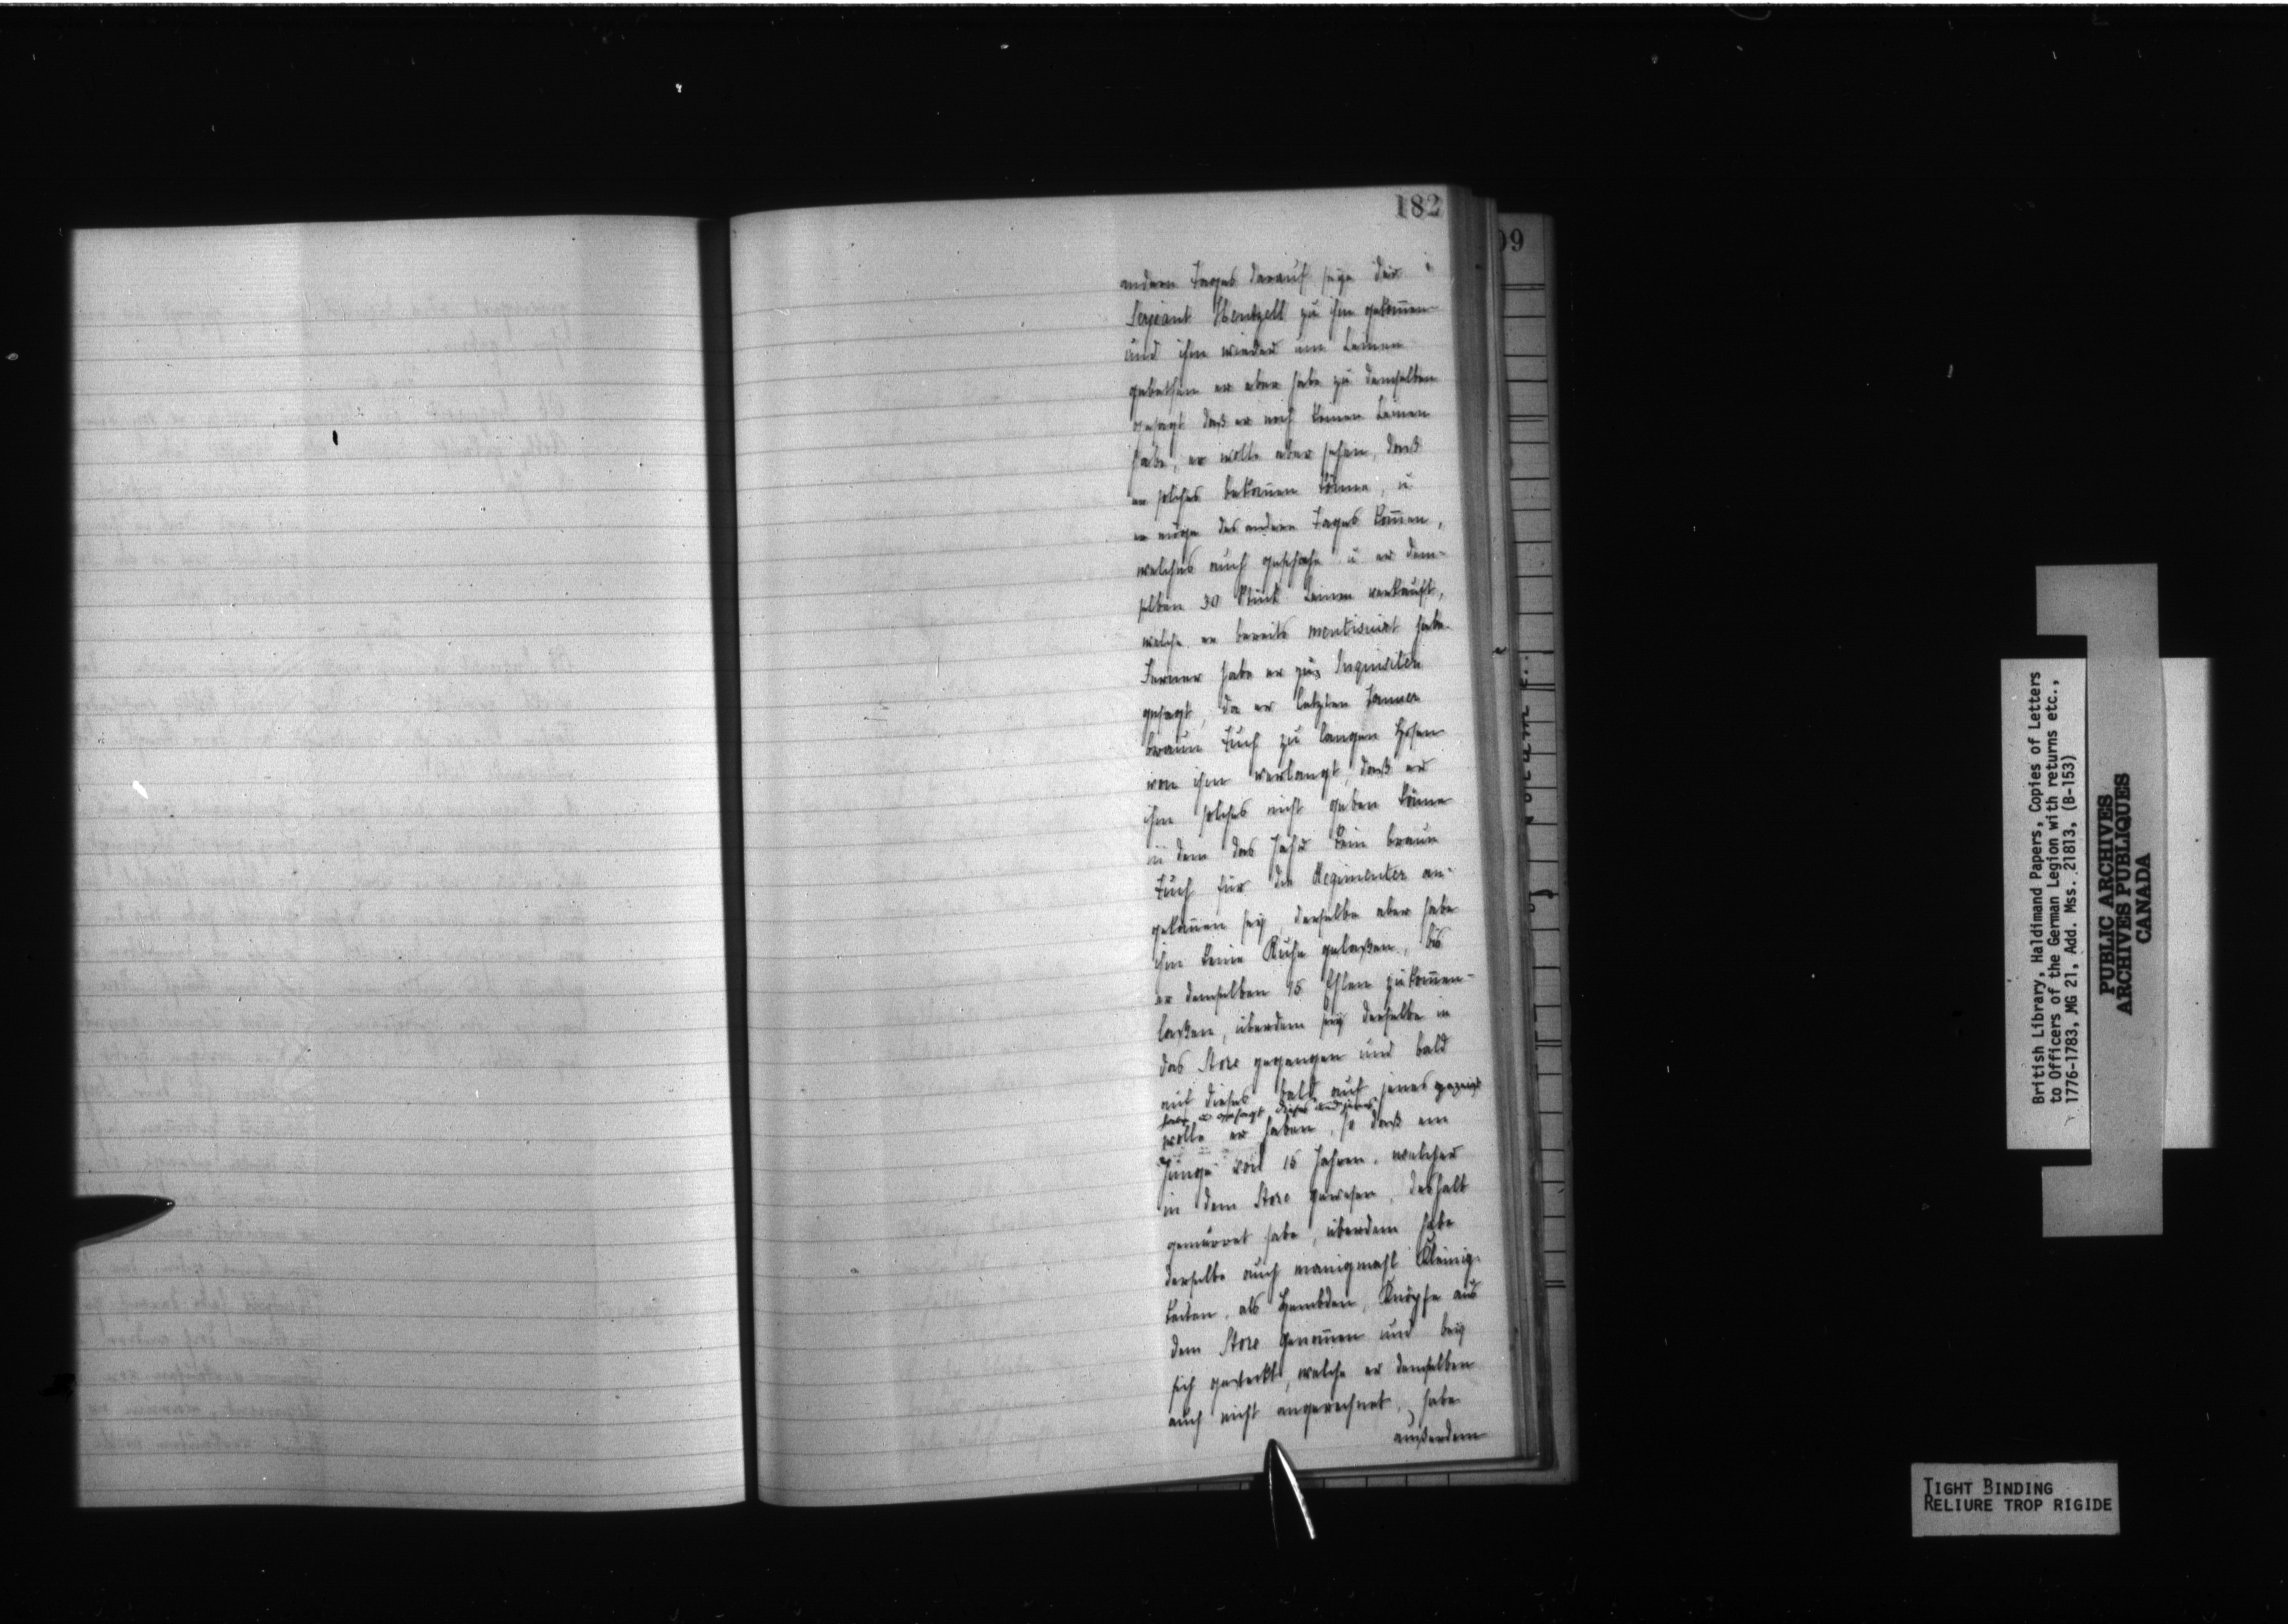 182
andern Tages darauf seye der
Serjeant Hentzell zu ihm gekom̄en
und ihn wieder um Leinen
gebethen er aber habe zu demselben
gesagt daß er noch keinen Leinen
habe, er wolle aber sehen, daß
er solches bekom̄en könne, u
er möge des andern Tages kom̄en,
welches auch geschehe u er dem-
selben 30 Stück Leinen verkauft,
welche er bereits mentionirt habe.
Ferner habe er zu Inquisiten
gesagt, da er letzten Januar
braun Tuch zu langen Hosen
von ihm verlangt, daß er
ihm solches nicht geben könne
in dem das Jahr kein braun
Tuch für die Regimenter an-
gekom̄en sey, derselbe aber habe
ihm keine Ruhe gelaßen, bis
er demselben 15 Ehlen zukom̄en-
laßen, überdem sey derselbe in
das Store gegangen und bald
auf dieses bald auf jenes gezeigt
habe u gesagt dieses und jenes
wolle er haben, so daß ein
Junge von 15 Jahren, welcher
in dem Store gewesen, deshalb
gemurret habe, überdem habe
derselbe auch manigmahl Kleinig-
keiten, als Hembden, Knöpfe aus
dem Store genom̄en und bey
sich gesteckt, welche er demselben
auch nicht angerechnet, habe
außerdem
09
British Library, Haldimand Papers, Copies of Letters
to Officers of the German Legion with returns etc.,
1776-1783, MG 21, Add. Mss. 21813, (B-153)
PUBLIC ARCHIVES
ARCHIVES PUBLIQUES
CANADA
TIGHT BINDING
RELIURE TROP RIGIDE